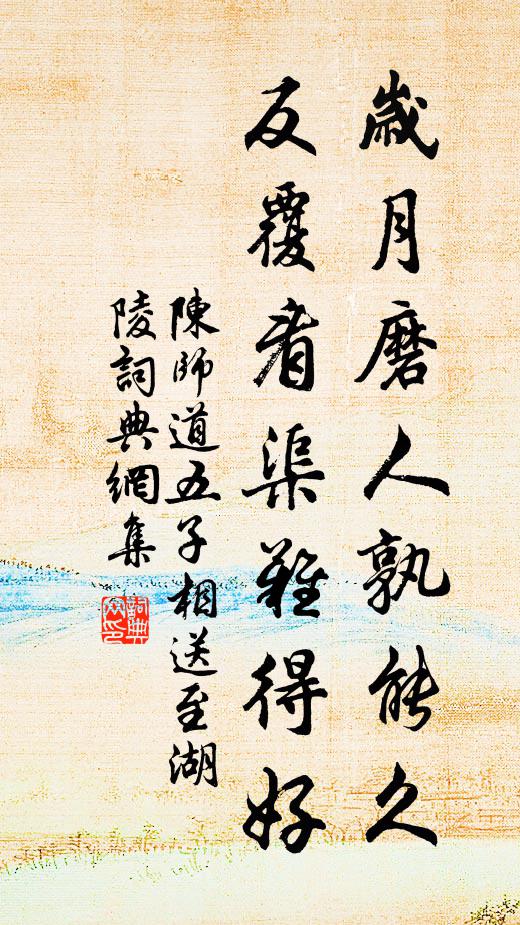 歲月磨人孰能久
反覆看渠難得好
陳師道五子相送至湖
陵詞典網集
詞典